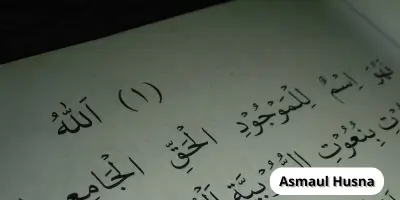 (١) اَللّٰهُ
اِسْمٌ لِلْمَوْجُوْدِ الْحَقِّ الْجَامِعِ
بِنُعُوْتِ الرُّبُوْبِيَّةِ
Asmaul Husna